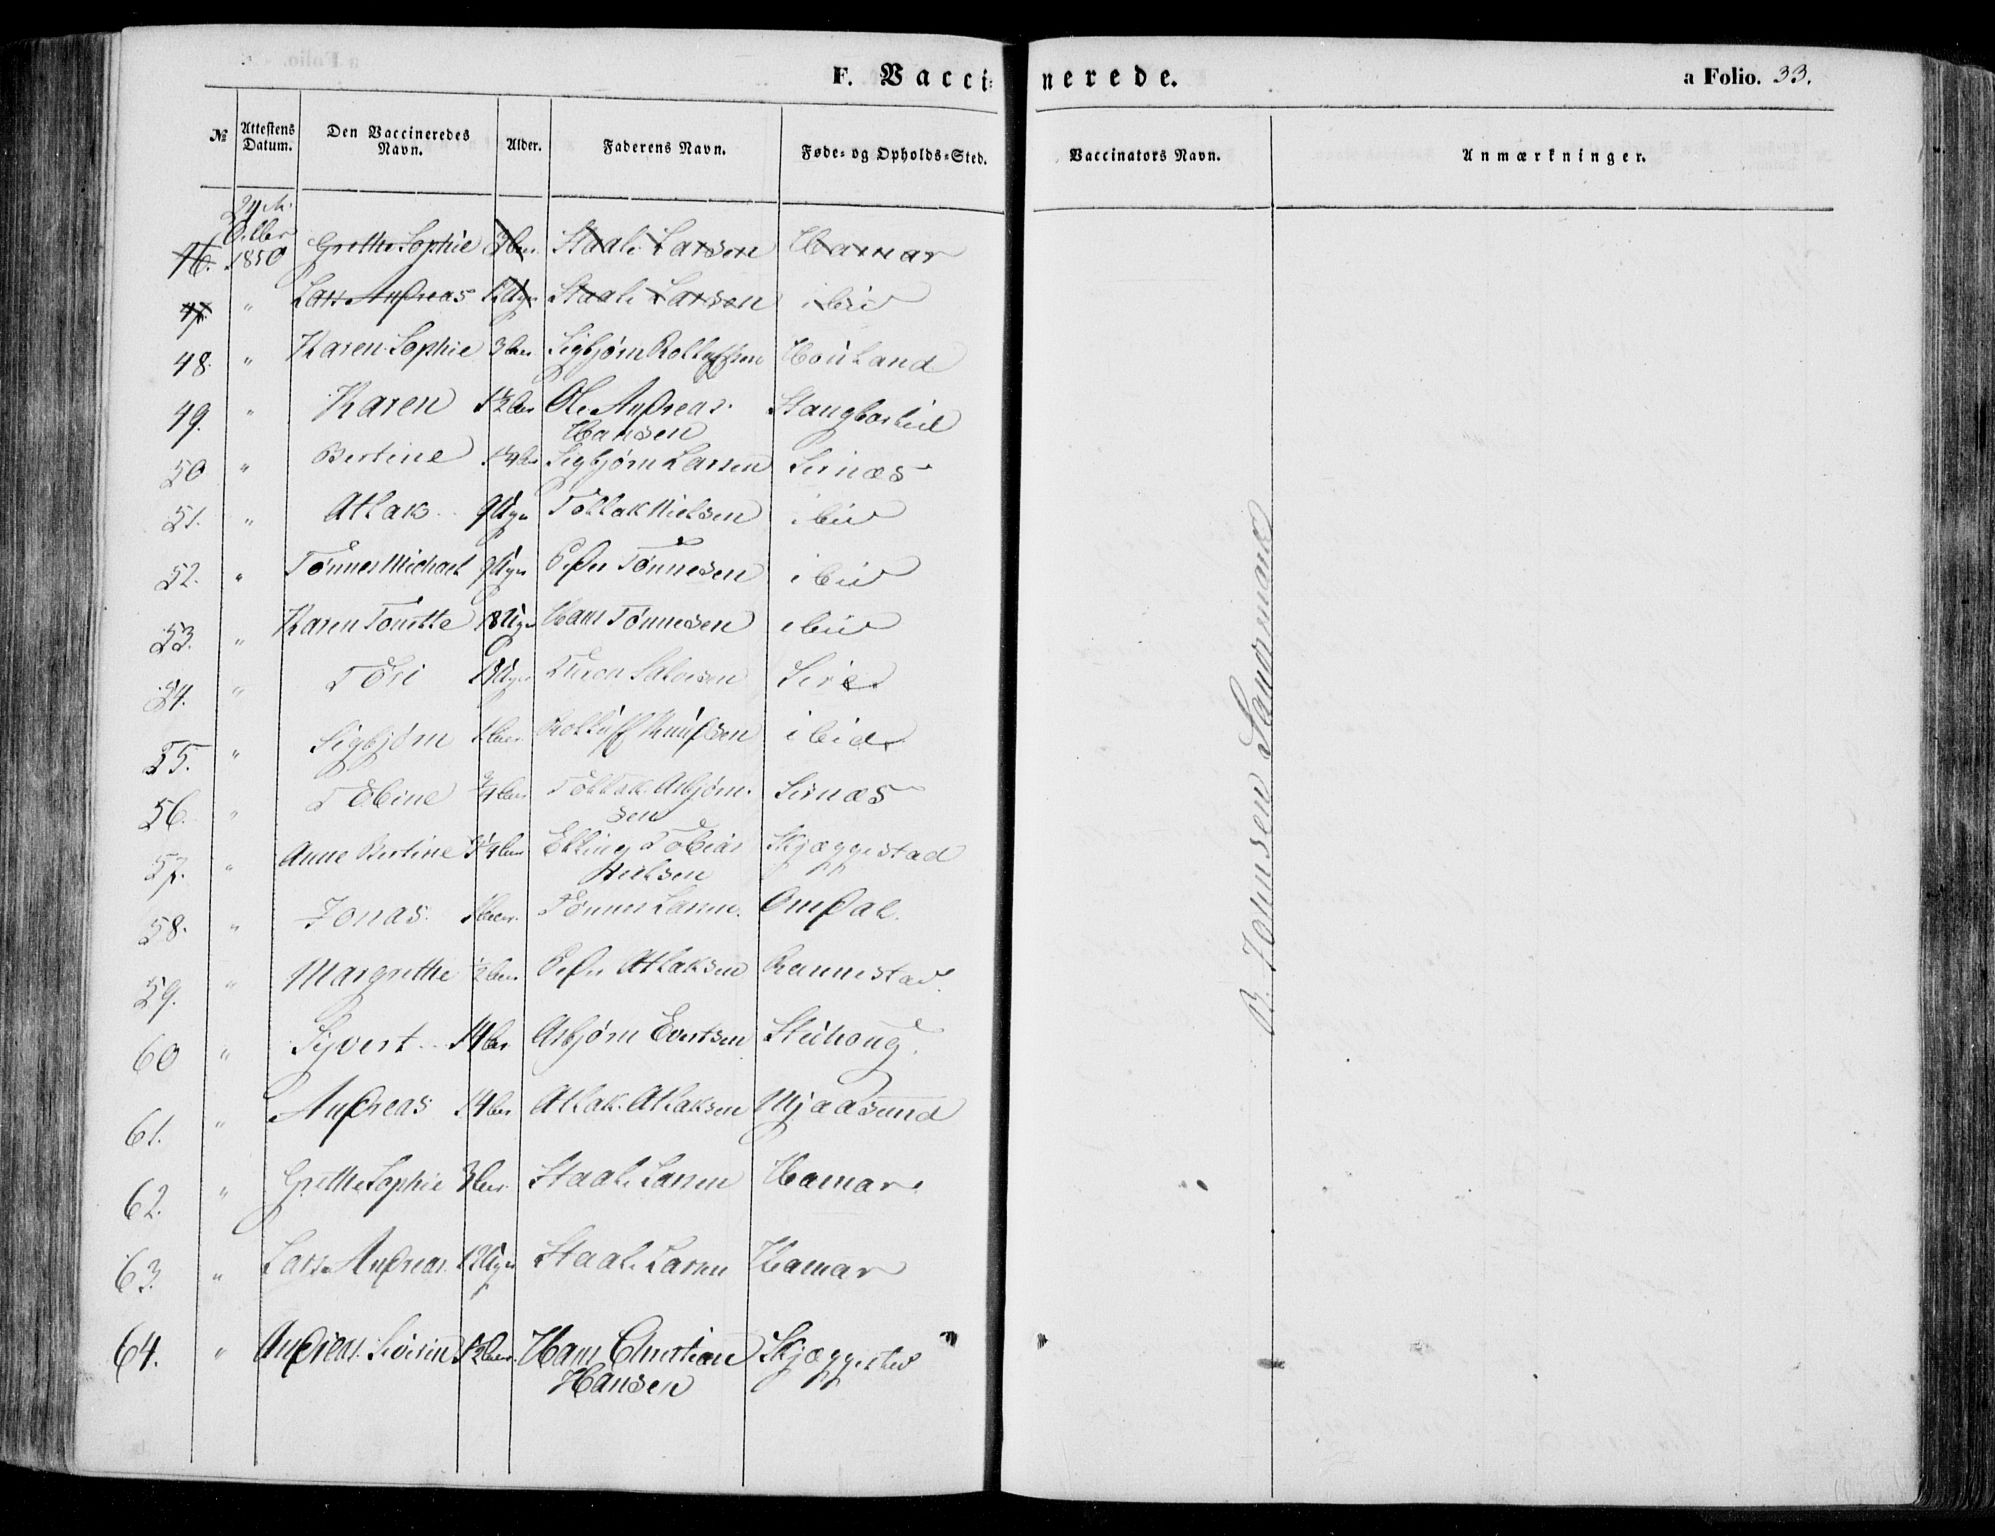 F. Vaccinerede. a Folio. 33.
№ Attestens Datum. Den Vaccineredes Navn. Alder. Faderens Navn. Føde- og Opholds-Sted. Vaccinators Navn. Anmærkninger.
24de
Octbr
46. 1850 Grethe Sophie 3 Aar Staale Larsen Hamar
47. " Lars Andreas 12 Uger Staale Larsen ibid
48. " Karen Sophie 3 Aar Sigbjørn Rolleffsen Houland
49. " Karen 1½ Aar Ole Andreas
Hansen
50 " Bertine Sigbjørn Larsen Sirnæs
51. " Atlak 9 Uger Tollak Nielsen ibid
52. " Tønnes Michael 9 Uger Peder Tønnesen ibid
53. " Karen Tonette 18 Uger Hans Tønnesen ibid
54. " Tori Salvesen Sire
55. " Sigbjørn 1 Aar Rolleff Knudsen ibid
56. " Tobine ¾ Aar Tollak Asbjørn-
sen Sirnæs
57. " Anne Bertine Elling Tobias
Nielsen Skjæggestad
58. " Jonas Tønnes Larsen Omdal.
59. " Margrethe ½ Aar Peder Atlaksen Rannestad.
60 " Sijvert 14 Aar Asbjørn Evertsen
61. " Andreas 14 Aar Atlak Atlaksen Mjaasund
62. " Grethe Sophie 3 Aar Staale Larsen Hamar
63. " Lars Andreas 12 Uger Staale Larsen Hamar
64. " Andreas Severin 1½ Aar Hans Christian
Hansen Skjæggestad